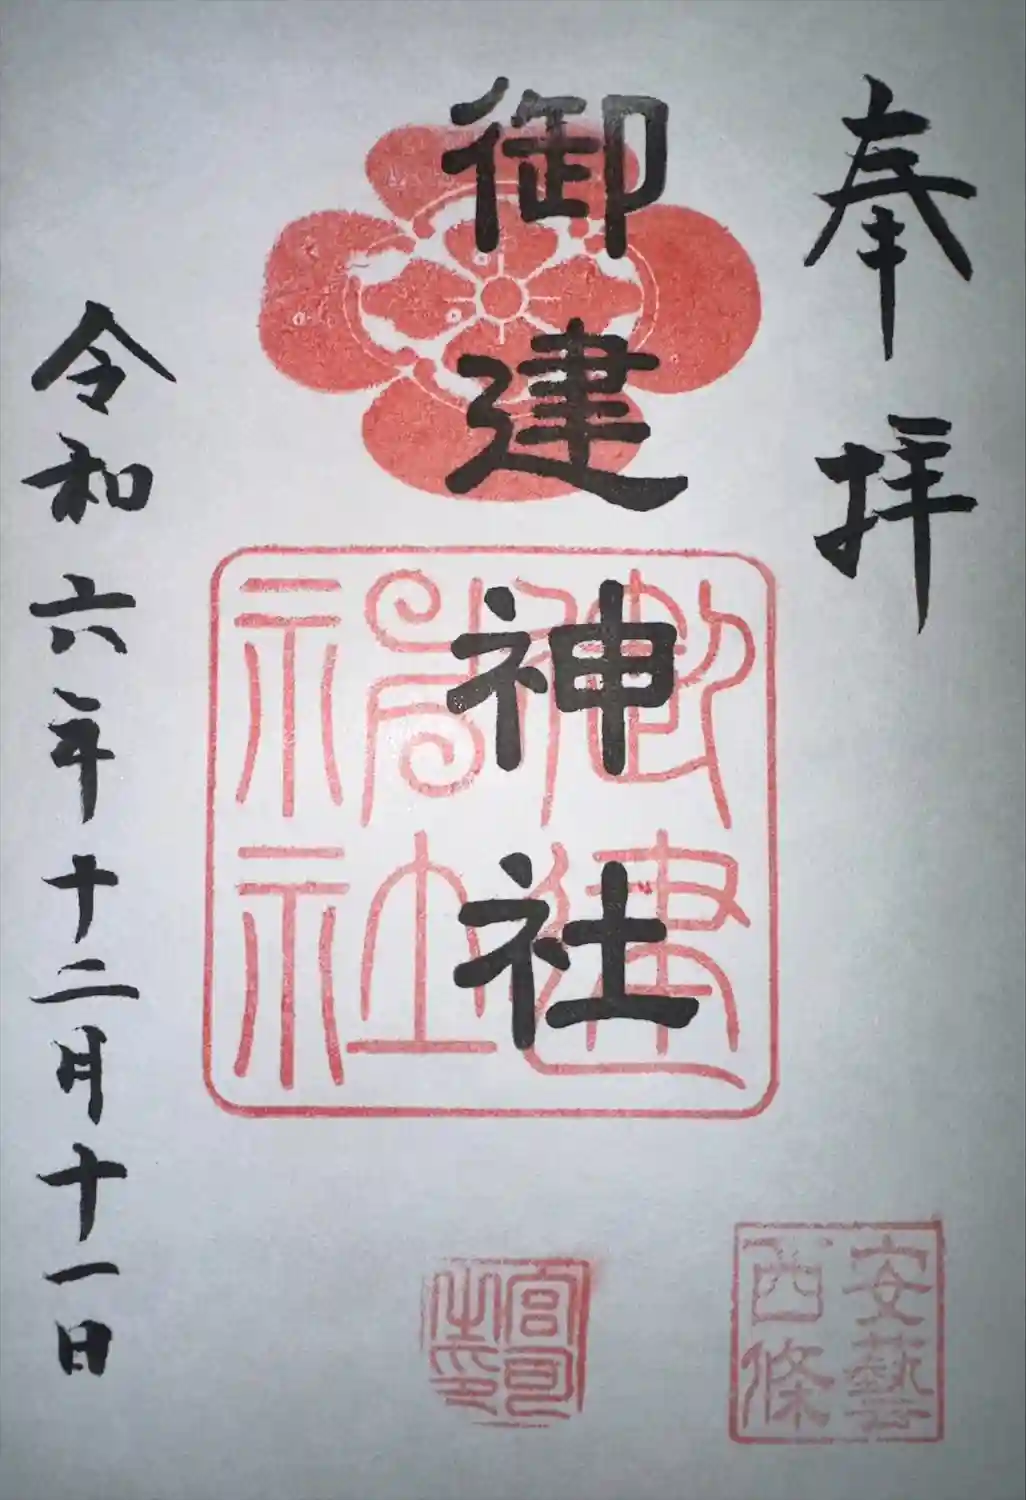 奉拝
御建神社
御建神社
安藝西條
宮司之印
令和六年十二月十一日